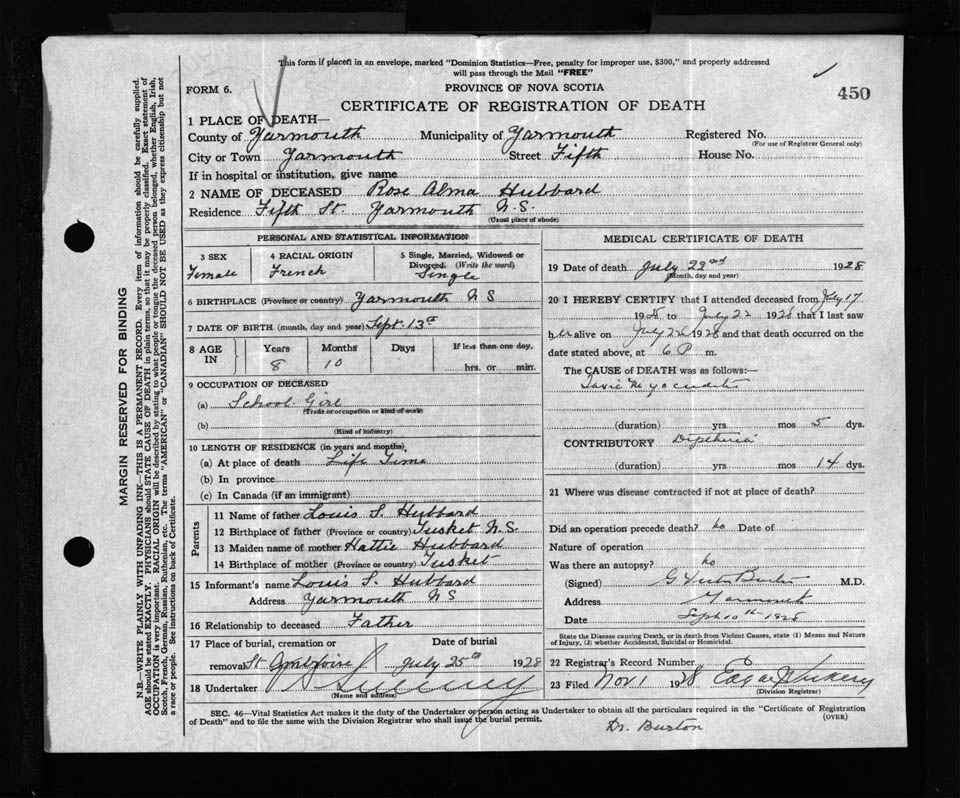 This form if placed in an envelope, marked "Dominion Statistics—Free, penalty for improper use, $300," and properly addressed
will pass through the Mail "FREE"
FORM 6.
PROVINCE OF NOVA SCOTIA
450
CERTIFICATE OF REGISTRATION OF DEATH
1 PLACE OF DEATH—
County of Yarmouth Municipality of Yarmouth Registered No.
(For use of Registrar General only)
City or Town Yarmouth Street Fifth House No.
If in hospital or institution, give name
2 NAME OF DECEASED Rose Alma Hubbard
Residence Fifth St. Yarmouth N.S.
(Usual place of abode)
PERSONAL AND STATISTICAL INFORMATION
3 SEX
Female
4 RACIAL ORIGIN
French
5 Single, Married, Widowed or
Divorced. (Write the word)
Single
6 BIRTHPLACE (Province or country) Yarmouth N S
7 DATE OF BIRTH (month, day and year) Sept. 13th
8 AGE IN
Years Months Days If less than one day,
8 10 hrs. or min.
9 OCCUPATION OF DECEASED
(a) School Girl
(Trade or occupation or kind of work)
(b)
(Kind of industry)
10 LENGTH OF RESIDENCE (in years and months)
(a) At place of death Life Time
(b) In province
(c) In Canada (if an immigrant)
Parents
11 Name of father Louis S. Hubbard
12 Birthplace of father (Province or country) Tusket N.S.
13 Maiden name of mother Hattie Hubbard
14 Birthplace of mother (Province or country) Tusket
15 Informant's name Louis S. Hubbard
Address Yarmouth NS
16 Relationship to deceased Father
17 Place of burial, cremation or Date of burial
removal St July 25th 1928
18 Undertaker
(Name and address)
MEDICAL CERTIFICATE OF DEATH
19 Date of death July 22nd 1928
(Month, day and year)
20 I HEREBY CERTIFY that I attended deceased from July 17
1928 to July 22 1928 that I last saw
her alive on July 22 1928 and that death occurred on
date stated above, at 6 P m.
The CAUSE of DEATH was as follows:
(duration) yrs mos 5 dys.
CONTRIBUTORY
(duration) yrs mos 14 dys.
21 Where was disease contracted if not at place of death?
Did an operation precede death? no Date of
Nature of operation
Was there an autopsy? no
(Signed) M.D.
Address Yarmouth
Date Sept 10th 1928
State the Disease causing Death, or in death from Violent Causes, state (1) Means and Nature
of Injury, (2) whether Accidental, Suicidal or Homicidal.
22 Registrar's Record Number
23 Filed Nov 1 1928
(Division Registrar)
SEC. 46—Vital Statistics Act makes it the duty of the Undertaker or person acting as Undertaker to obtain all the particulars required in the "Certificate of Registration
of Death" and to file the same with the Division Registrar who shall issue the burial permit.
(OVER)
Dr. Burton
MARGIN RESERVED FOR BINDING
N.B—WRITE PLAINLY WITH UNFADING INK—THIS IS A PERMANENT RECORD. Every item of information should be carefully supplied.
AGE should be stated EXACTLY. PHYSICIANS should STATE CAUSE OF DEATH in plain terms, so that it may be properly classified. Exact statement of
OCCUPATION is very important. RACIAL ORIGIN will be described by stating to what people or tongue the deceased person belonged, whether English, Irish,
Scotch, French, German, Russian, Ruthenian, etc. The terms "AMERICAN" or "CANADIAN" SHOULD NOT BE USED as they express citizenship but not
a race or people. See instructions on back of Certificate.